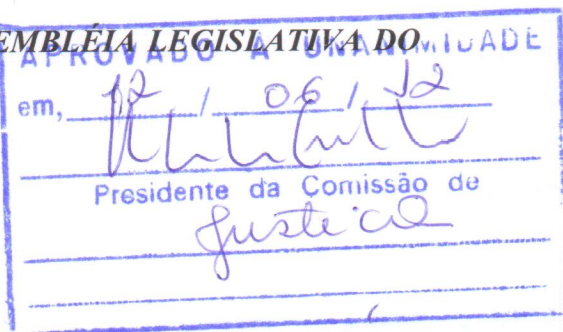 EMBLÉIA LEGISLATIVA DO
APROVADO A UNANIMIDADE
em, 12 / 06 / 12
Presidente da Comissão de
Justiça